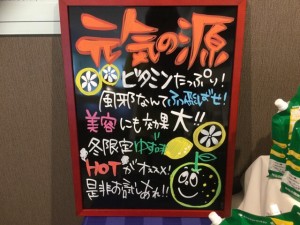 元気の源
ビタミンたっぷり!
風邪なんてふっ飛ばせ!
美容にも効果大!!
冬限定ゆず
HOTがオススメ!
是非お試しあれ!!